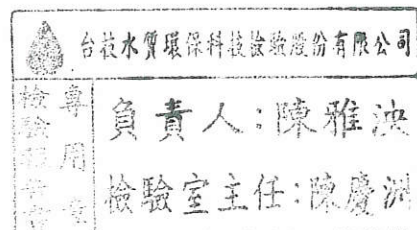 台技水質環保科技檢驗股份有限公司
檢驗報告章
專用章
負責人:陳雅泱
檢驗室主任:陳慶洲